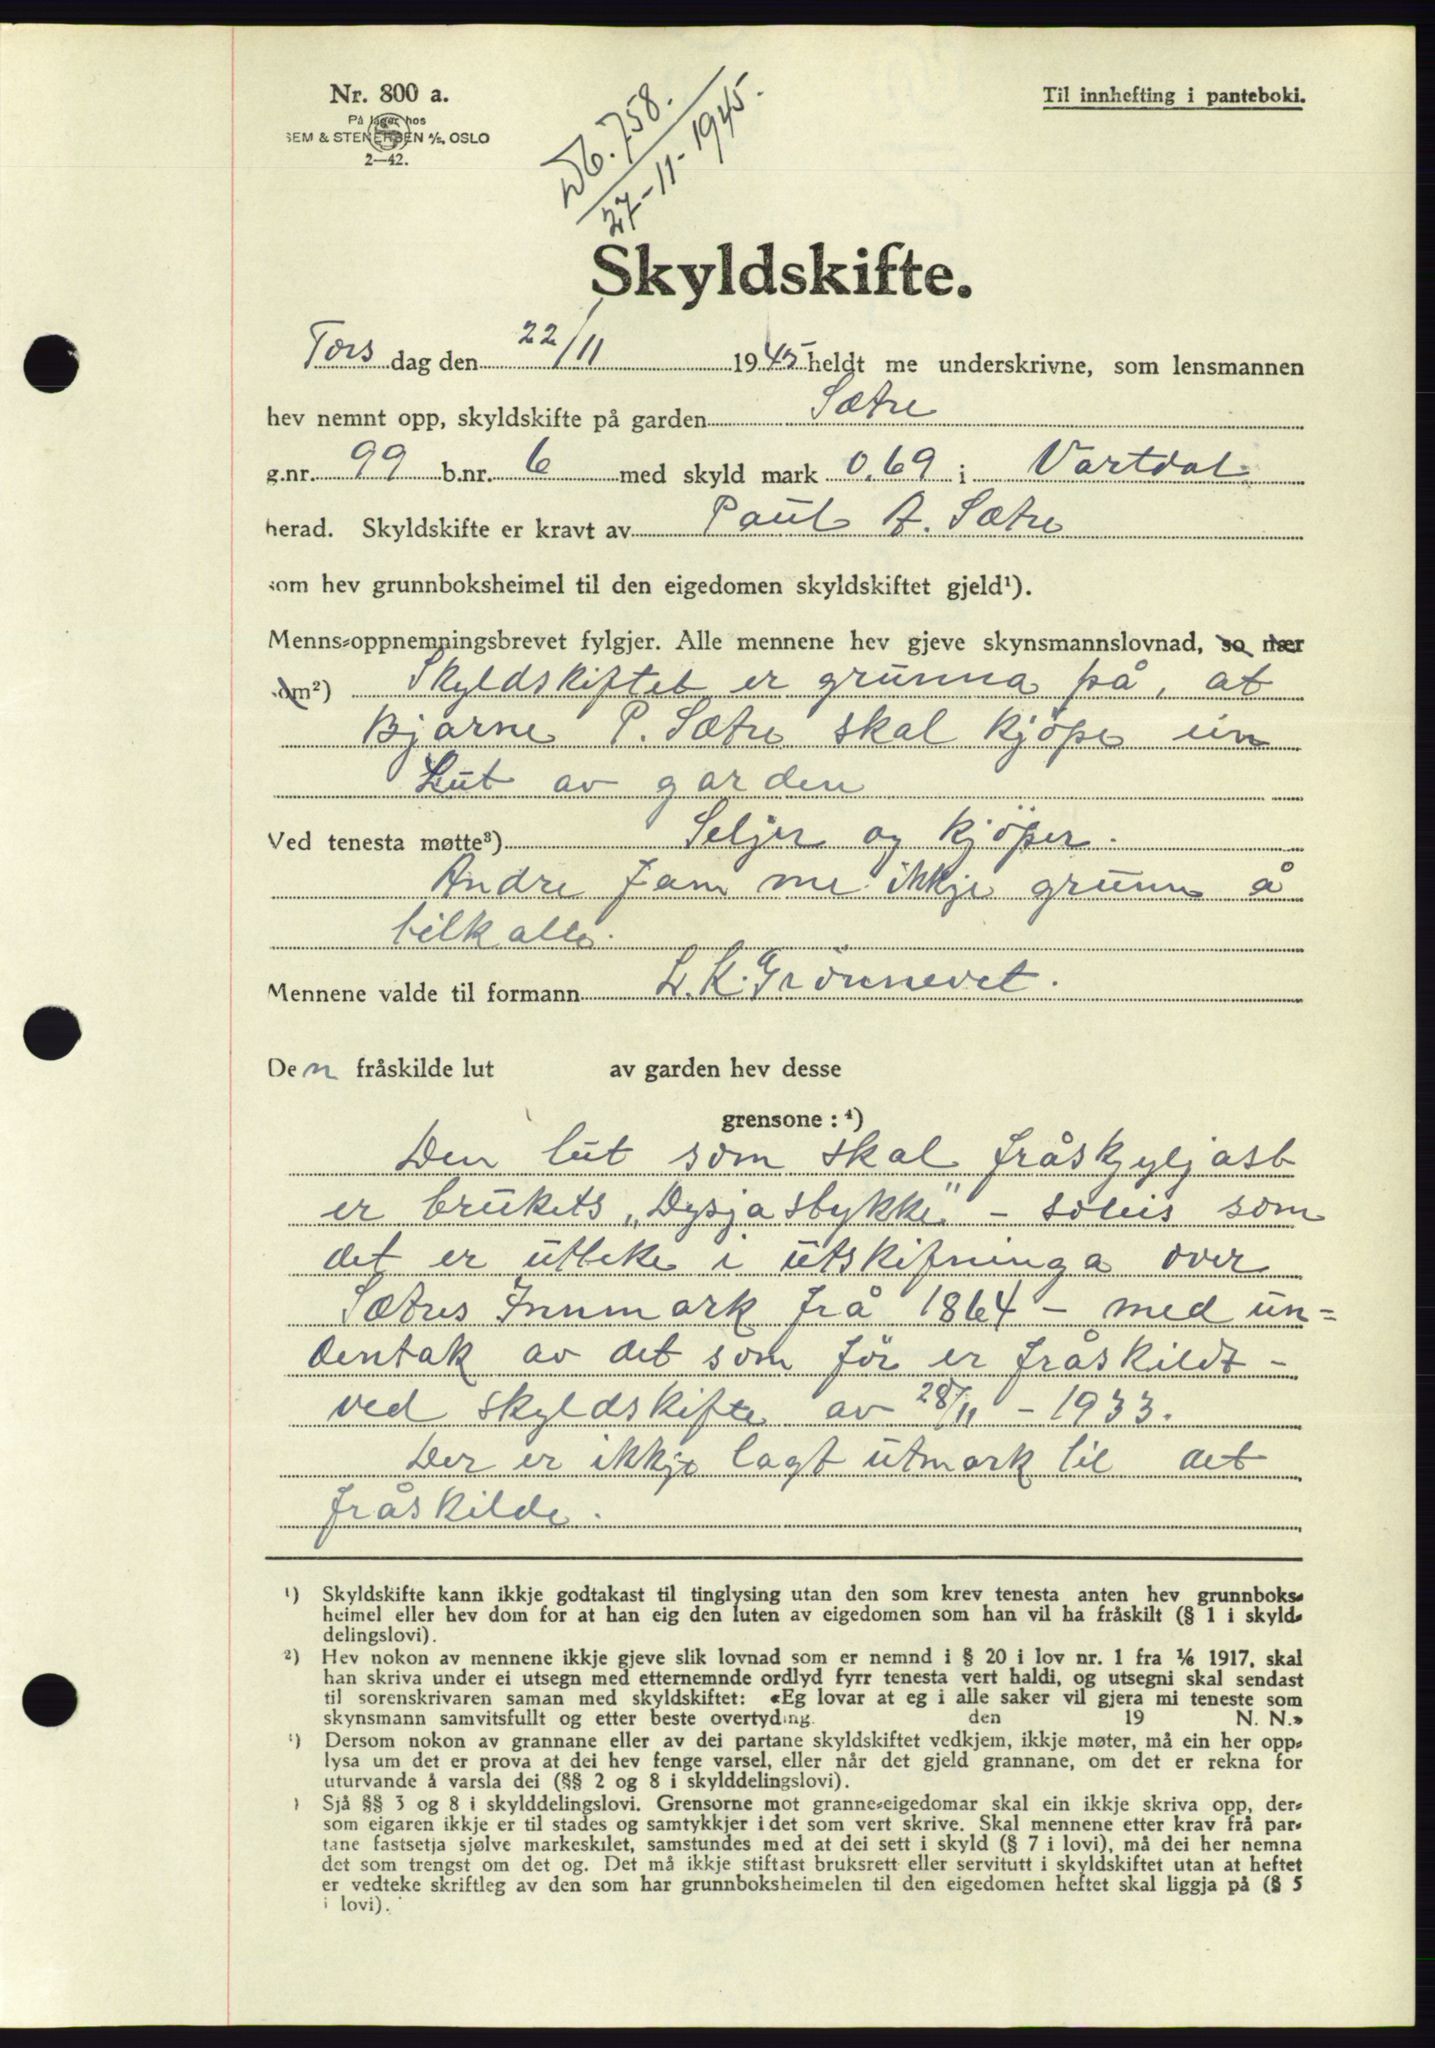 Nr. 800 a.
På lager hos
SEM & STENERSEN A/S, OSLO
2—42.
Db. 758.
27-11-1945.
Til innhefting i panteboki.
Skyldskifte.
Tors dag den 22/11 1945 heldt me underskrivne, som lensmannen
hev nemnt opp, skyldskifte på garden Sætre
g.nr. 99 b.nr. 6 med skyld mark 0,69 i Vartdal
herad. Skyldskifte er kravt av Paul A. Sætre
som hev grunnboksheimel til den eigedomen skyldskiftet gjeld¹).
Menns-oppnemningsbrevet fylgjer. Alle mennene hev gjeve skynsmannslovnad, so nær
som²) Skyldskiftet er grunna på, at
Bjarne P. Sætre skal kjöpe ein
Lut av garden
Ved tenesta møtte³) Seljer og kjöper.
Andre fam me ikkje grunn å
tilkalle.
Mennene valde til formann L. K. Grönnevet.
Den fråskilde lut av garden hev desse
grensone : ⁴)
Den lut som skal fråskyljast
er brukets „Dysjastykke" - soleis som
det er utteke i utskifninga over
Sætres Innmark frå 1864 - med un=
dentak av det som för er fråskildt -
ved skyldskifte av 28/11 - 1933.
Der er ikkje lagt utmark til det
fråskilde.
¹) Skyldskifte kann ikkje godtakast til tinglysing utan den som krev tenesta anten hev grunnboks-
heimel eller hev dom for at han eig den luten av eigedomen som han vil ha fråskilt (§ 1 i skyld-
delingslovi).
²) Hev nokon av mennene ikkje gjeve slik lovnad som er nemnd i § 20 i lov nr. 1 fra ⅙ 1917, skal
han skriva under ei utsegn med etternemnde ordlyd fyrr tenesta vert haldi, og utsegni skal sendast
til sorenskrivaren saman med skyldskiftet: «Eg lovar at eg i alle saker vil gjera mi teneste som
skynsmann samvitsfullt og etter beste overtyding. den 19 N. N.»
³) Dersom nokon av grannane eller av dei partane skyldskiftet vedkjem, ikkje møter, må ein her opp-
lysa um det er prova at dei hev fenge varsel, eller når det gjeld grannane, om det er rekna for
uturvande å varsla dei (§§ 2 og 8 i skylddelingslovi).
) Sjå §§ 3 og 8 i skylddelingslovi. Grensorne mot granne-eigedomar skal ein ikkje skriva opp, der-
som eigaren ikkje er til stades og samtykkjer i det som vert skrive. Skal mennene etter krav frå par-
tane fastsetja sjølve markeskilet, samstundes med at dei sett i skyld (§ 7 i lovi), må dei her nemna
det som trengst om det og. Det må ikkje stiftast bruksrett eller servitutt i skyldskiftet utan at heftet
er vedteke skriftleg av den som har grunnboksheimelen til den eigedomen heftet skal liggja på (§ 5
i lovi).